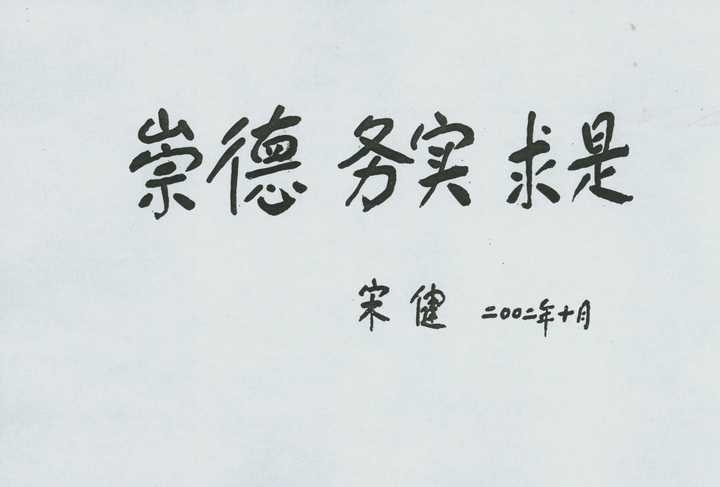 崇德 务实 求是
宋健 二〇〇二年十月